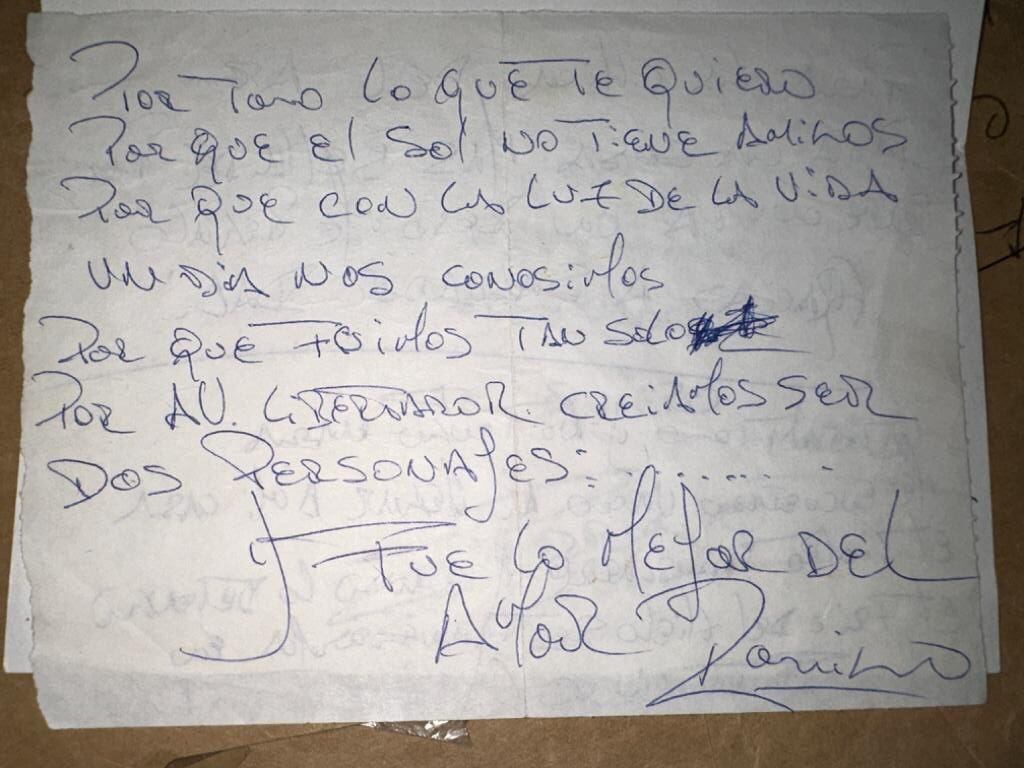 POR TODO LO QUE TE QUIERO
POR QUE EL SOL NO TIENE
POR QUE CON LA LUZ DE LA VIDA
UN DIA NOS CONOSIMOS
POR QUE FUIMOS TAN SOLO
POR AV. LIBERTADOR. CREIAMOS SER
DOS PERSONAJES: .......
Y FUE LO MEJOR DEL
AMOR